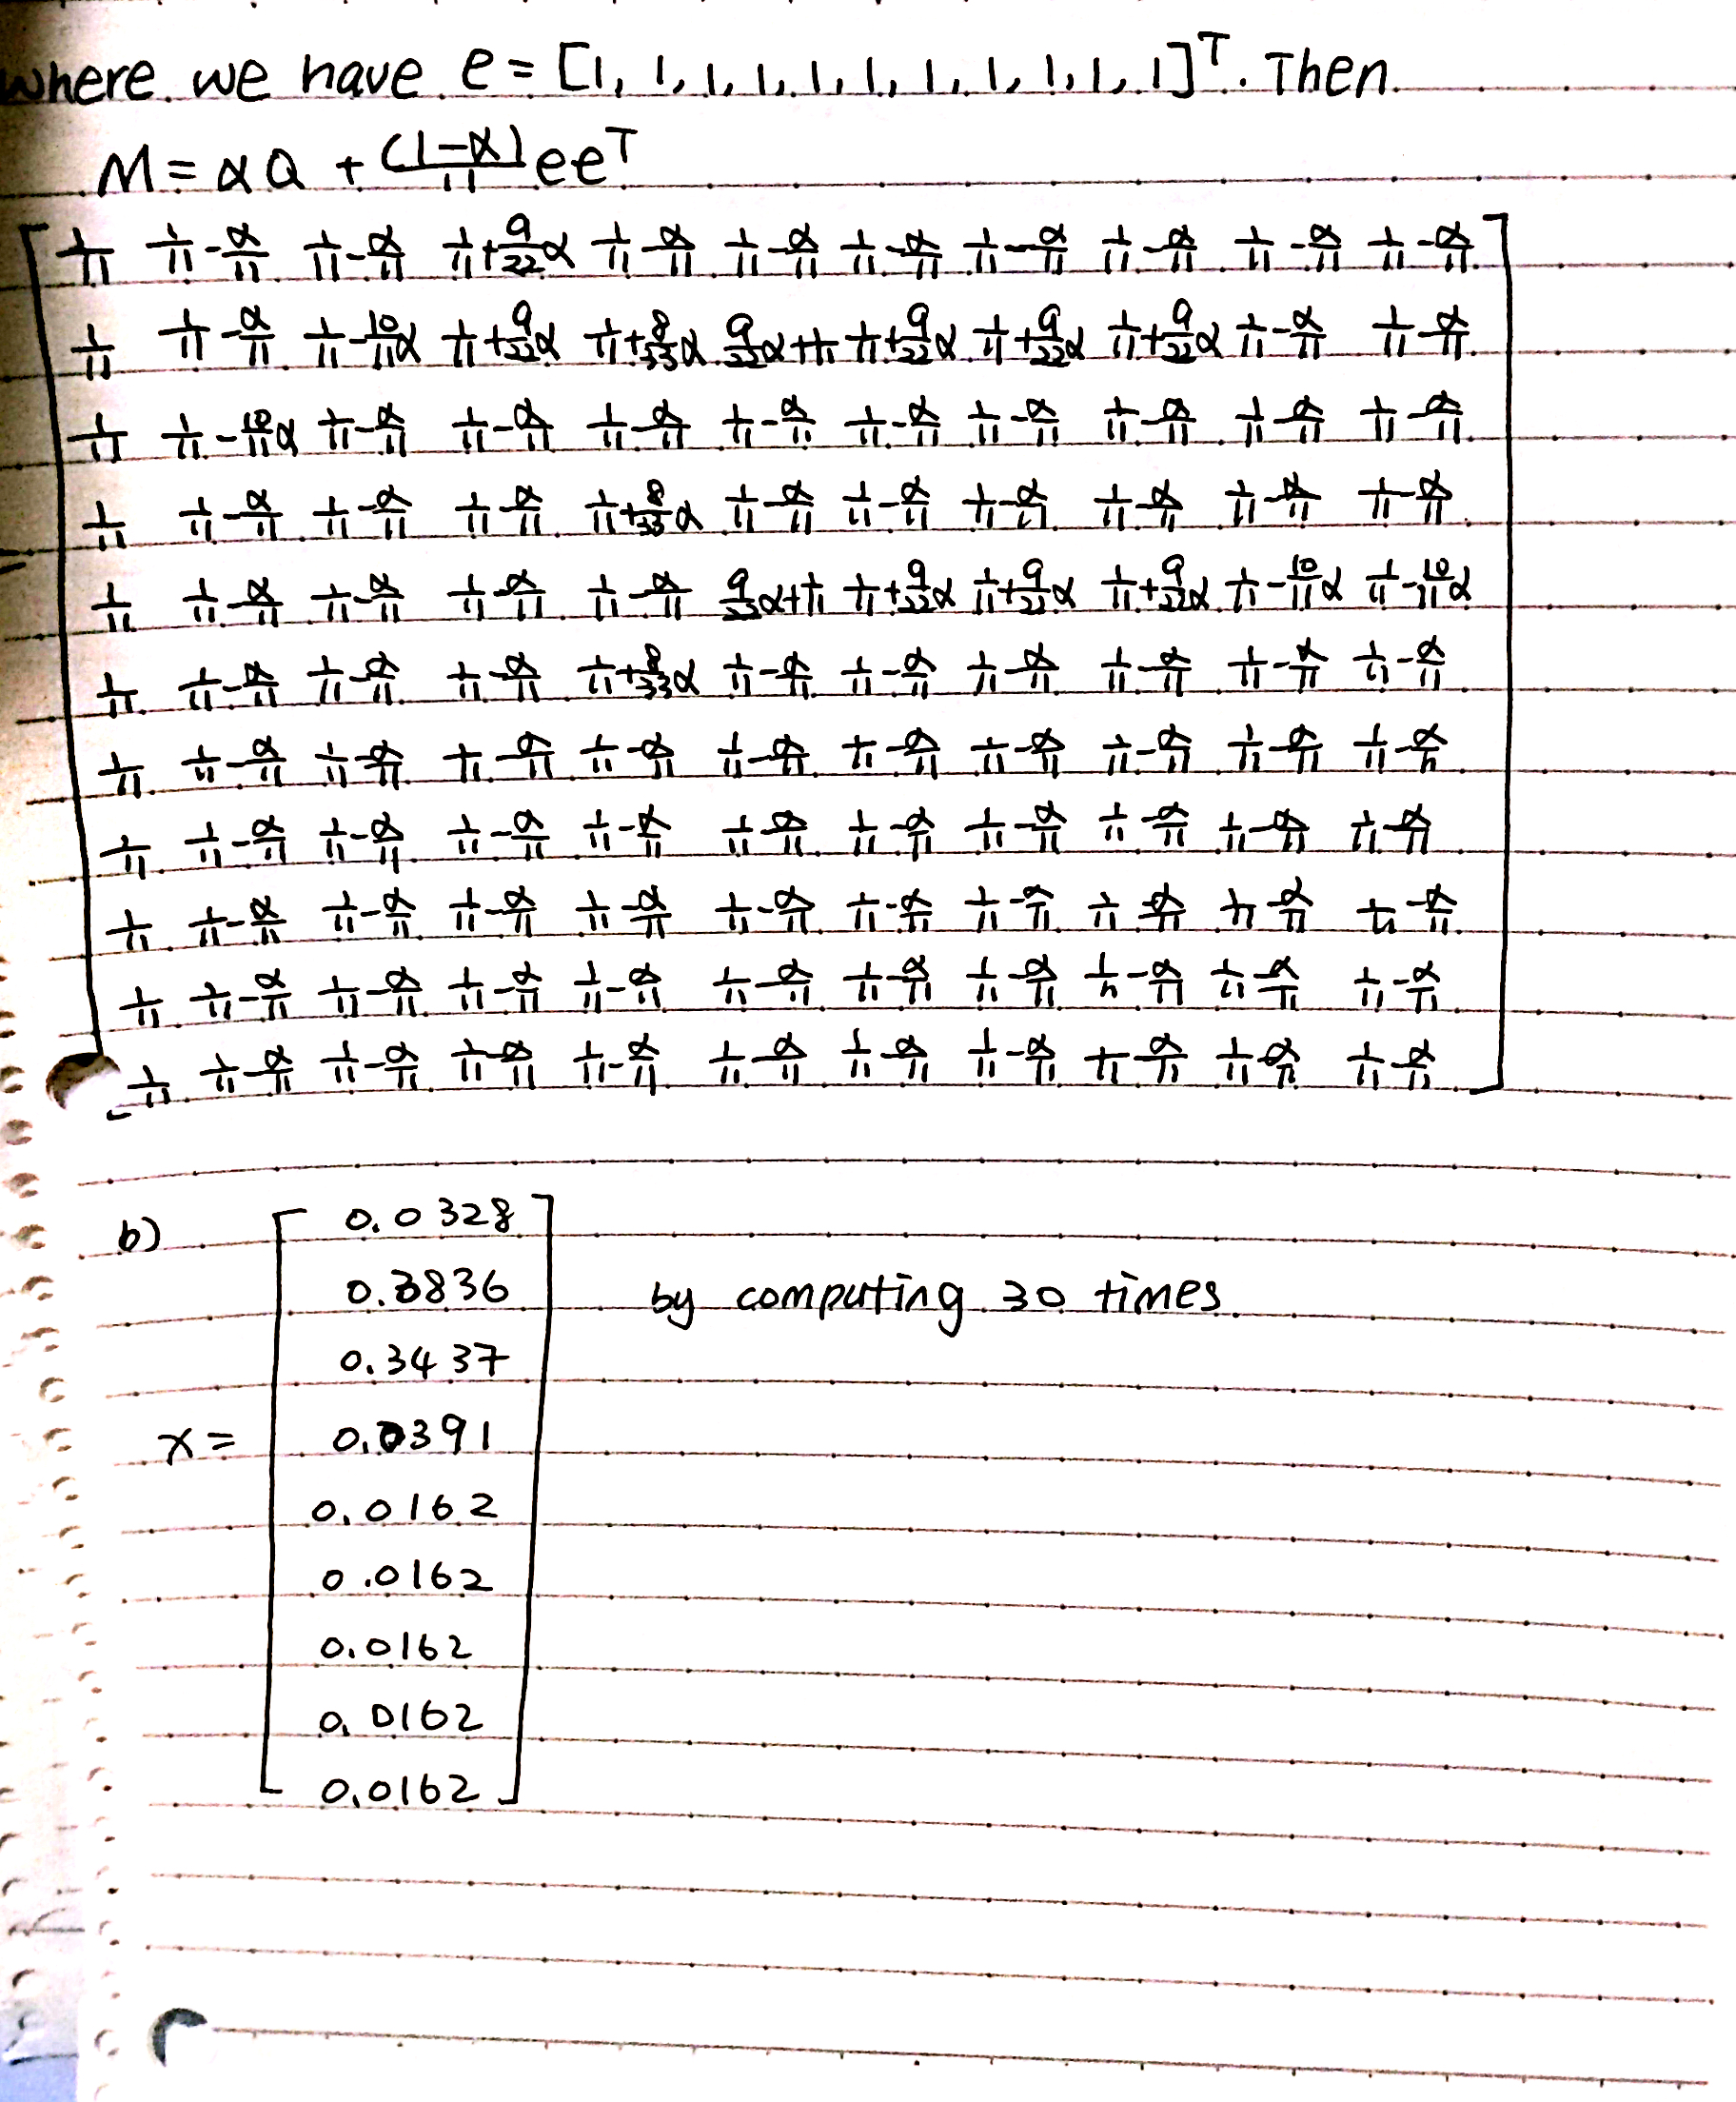 where we have e = [1, 1, 1, 1, 1, 1, 1, 1, 1, 1, 1]ᵀ. Then
M = αQ + (1-α)/11 eeᵀ
1/11 1/11-α/11 1/11-α/11 1/11+9/22α 1/11-α/11 1/11-α/11 1/11-α/11 1/11-α/11 1/11-α/11 1/11-α/11 1/11-α/11
1/11 1/11-α/11 1/11-10/11α 1/11+9/22α 1/11+8/33α 9/22α+1/11 1/11+9/22α 1/11+9/22α 1/11+9/22α 1/11-α/11 1/11-α/11
1/11 1/11-10/11α 1/11-α/11 1/11-α/11 1/11-α/11 1/11-α/11 1/11-α/11 1/11-α/11 1/11-α/11 1/11-α/11 1/11-α/11
1/11 1/11-α/11 1/11-α/11 1/11-α/11 1/11+8/33α 1/11-α/11 1/11-α/11 1/11-α/11 1/11-α/11 1/11-α/11 1/11-α/11
1/11 1/11-α/11 1/11-α/11 1/11-α/11 1/11-α/11 9/22α+1/11 1/11+9/22α 1/11+9/22α 1/11+9/22α 1/11-10/11α 1/11-10/11α
1/11 1/11-α/11 1/11-α/11 1/11-α/11 1/11+8/33α 1/11-α/11 1/11-α/11 1/11-α/11 1/11-α/11 1/11-α/11 1/11-α/11
1/11 1/11-α/11 1/11-α/11 1/11-α/11 1/11-α/11 1/11-α/11 1/11-α/11 1/11-α/11 1/11-α/11 1/11-α/11 1/11-α/11
1/11 1/11-α/11 1/11-α/11 1/11-α/11 1/11-α/11 1/11-α/11 1/11-α/11 1/11-α/11 1/11-α/11 1/11-α/11 1/11-α/11
1/11 1/11-α/11 1/11-α/11 1/11-α/11 1/11-α/11 1/11-α/11 1/11-α/11 1/11-α/11 1/11-α/11 1/11-α/11 1/11-α/11
1/11 1/11-α/11 1/11-α/11 1/11-α/11 1/11-α/11 1/11-α/11 1/11-α/11 1/11-α/11 1/11-α/11 1/11-α/11 1/11-α/11
1/11 1/11-α/11 1/11-α/11 1/11-α/11 1/11-α/11 1/11-α/11 1/11-α/11 1/11-α/11 1/11-α/11 1/11-α/11 1/11-α/11
b) 0.0328
0.3836 by computing 30 times
0.3437
x = 0.0391
0.0162
0.0162
0.0162
0.0162
0.0162